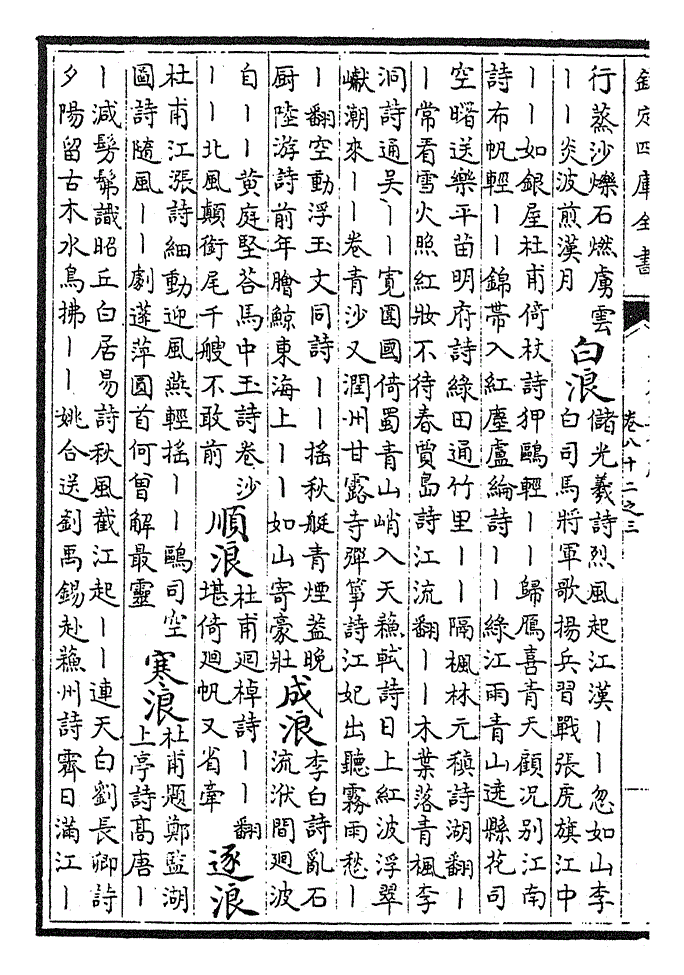 欽定四庫全書
卷八十二之三
行蒸沙爍石燃虜雲
丨丨炎波煎漢月
白浪
儲光羲詩烈風起江漢丨丨忽如山李
白司馬將軍歌揚兵習戰張虎旗江中
丨丨如銀屋杜甫倚杖詩狎鷗輕丨丨歸鴈喜青天顧况别江南
詩布帆輕丨丨錦帶入紅塵盧綸詩丨丨綠江雨青山遶縣花司
空曙送樂平苗明府詩綠田通竹里丨丨隔楓林元稹詩湖翻丨
丨常看雪火照紅妝不待春賈島詩江流翻丨丨木葉落青楓李
洞詩通吳丨丨寛圍國倚蜀青山峭入天蘇軾詩日上紅波浮翠
巘潮來丨丨卷青沙又潤州甘露寺彈箏詩江妃出聽霧雨愁丨
丨翻空動浮玉文同詩丨丨搖秋艇青煙葢晚
厨陸游詩前年膾鯨東海上丨丨如山寄豪壯
成浪
李白詩亂石
流洑間廻波
自丨丨黄庭堅荅馬中玉詩卷沙
丨丨北風顛銜尾千艘不敢前
順浪
杜甫廻棹詩丨丨翻
堪倚廻帆又省牽
逐浪
杜甫江漲詩細動迎風燕輕搖丨丨鷗司空
圖詩隨風丨丨劇蓬萍圓首何曾解最靈
寒浪
杜甫題鄭監湖
上亭詩高唐丨
丨減髣髴識昭丘白居易詩秋風截江起丨丨連天白劉長卿詩
夕陽留古木水鳥拂丨丨姚合送劉禹錫赴蘇州詩霽日滿江丨